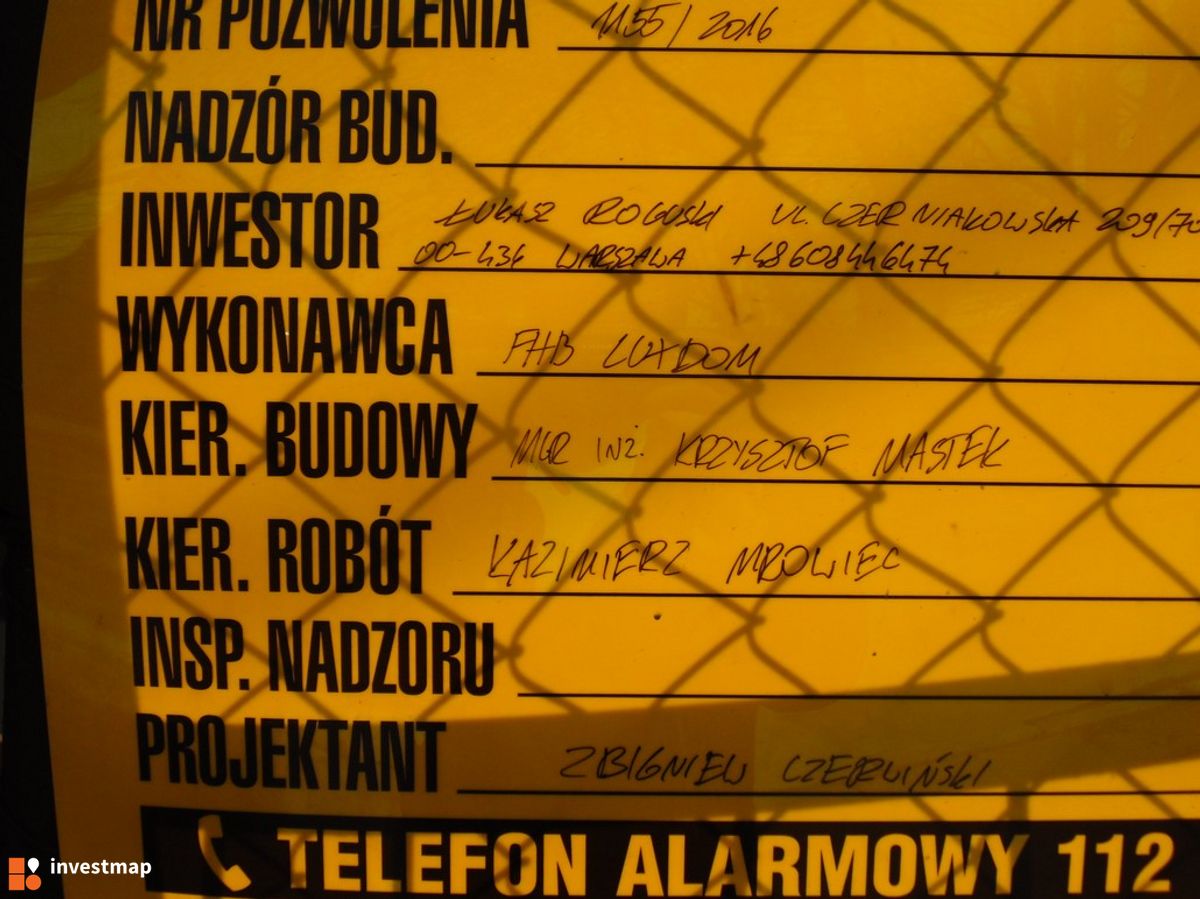 NR POZWOLENIA 1155/2016
NADZÓR BUD.
INWESTOR ŁUKASZ ROGUSKI UL. CZERNIAKOWSKA 209/70
00-436 WARSZAWA +48608446474
WYKONAWCA FHB LUXDOM
KIER. BUDOWY MGR INŻ. KRZYSZTOF MASTEK
KIER. ROBÓT KAZIMIERZ MROWIEC
INSP. NADZORU
PROJEKTANT ZBIGNIEW CZERWIŃSKI
TELEFON ALARMOWY 112
investmap